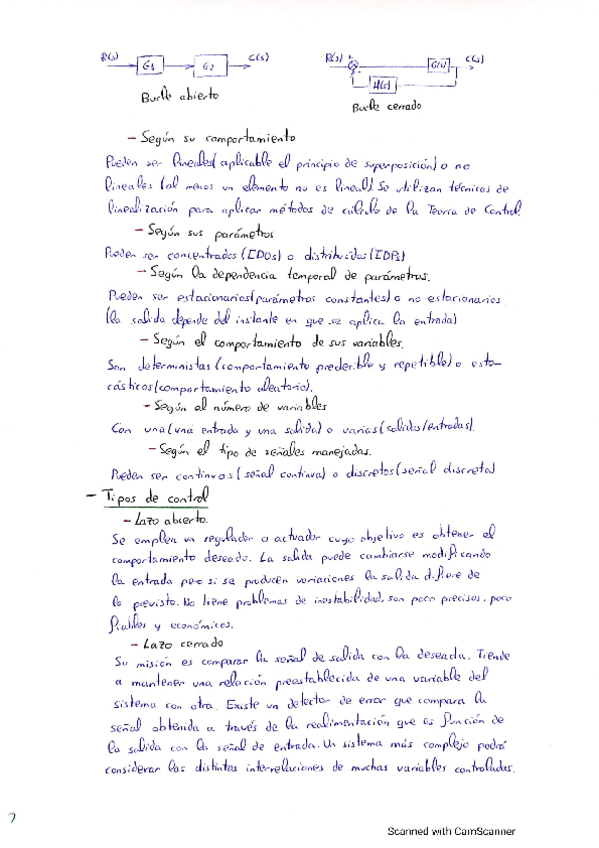 R(s) G1 G2 C(s) R(s) G(s) C(s)
H(s)
Bucle abierto Bucle cerrado
- Según su comportamiento
Pueden ser lineales (aplicable el principio de superposición) o no
lineales (al menos un elemento no es lineal). Se utilizan técnicas de
linealización para aplicar métodos de cálculo de la Teoría de Control.
- Según sus parámetros
Pueden ser concentrados (EDOs) o distribuidos (EDPs)
- Según la dependencia temporal de parámetros.
Pueden ser estacionarios (parámetros constantes) o no estacionarios
(la salida depende del instante en que se aplica la entrada)
- Según el comportamiento de sus variables.
Son deterministas (comportamiento predecible y repetible) o esto-
cásticos (comportamiento aleatorio).
- Según el número de variables
Con una (una entrada y una salida) o varias (salidas/entradas).
- Según el tipo de señales manejadas.
Pueden ser continuos (señal continua) o discretos (señal discreta)
- Tipos de control
- Lazo abierto.
Se emplea un regulador o actuador cuyo objetivo es obtener el
comportamiento deseado. La salida puede cambiarse modificando
la entrada pero si se producen variaciones la salida difiere de
lo previsto. No tiene problemas de inestabilidad, son poco precisos, poco
fiables y económicos.
- Lazo cerrado
Su misión es comparar la señal de salida con la deseada. Tiende
a mantener una relación preestablecida de una variable del
sistema con otra. Existe un detector de error que compara la
señal obtenida a través de la realimentación que es función de
la salida con la señal de entrada. Un sistema más complejo podrá
considerar las distintas interrelaciones de muchas variables controladas.
2
Scanned with CamScanner